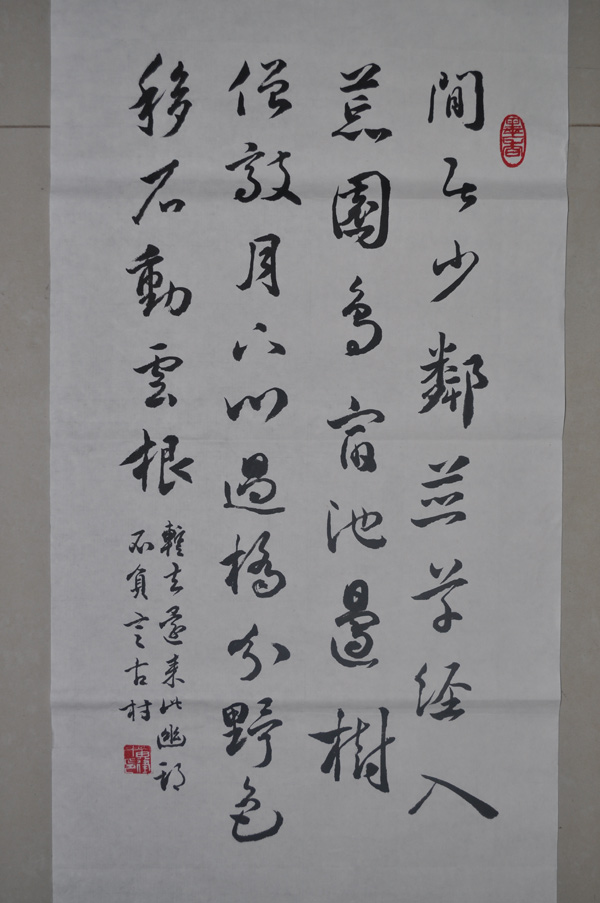 墨香
閒居少鄰並草徑入
荒園鳥宿池邊樹
僧敲月下門過橋分野色
移石動雲根
暫去還來此幽期
不負言古村